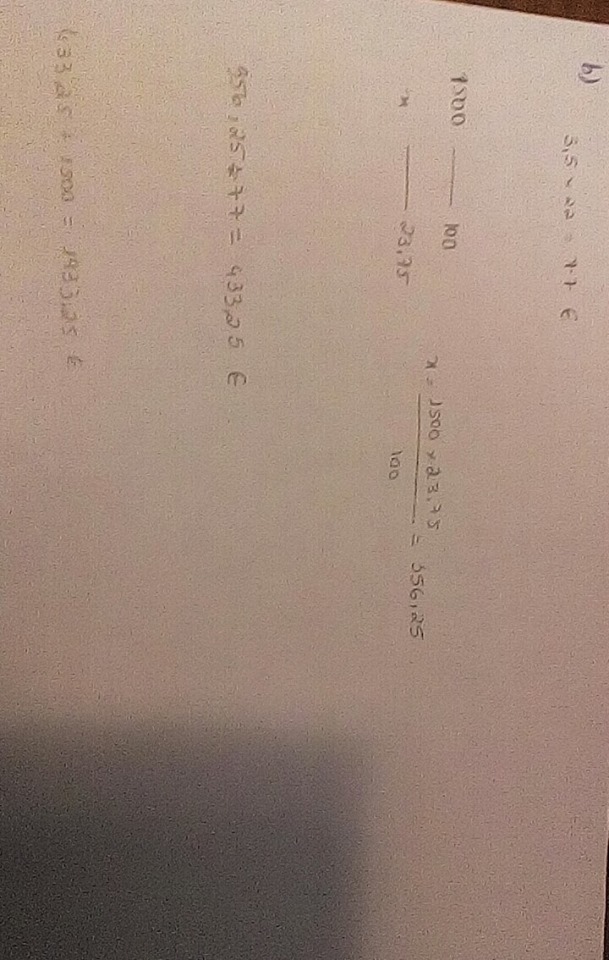 b)
3,5 × 22 = 77 €
1500 —— 100
x —— 23,75
x = 1500 × 23,75 / 100 = 356,25
356,25 + 77 = 433,25 €
433,25 + 1500 = 1933,25 €